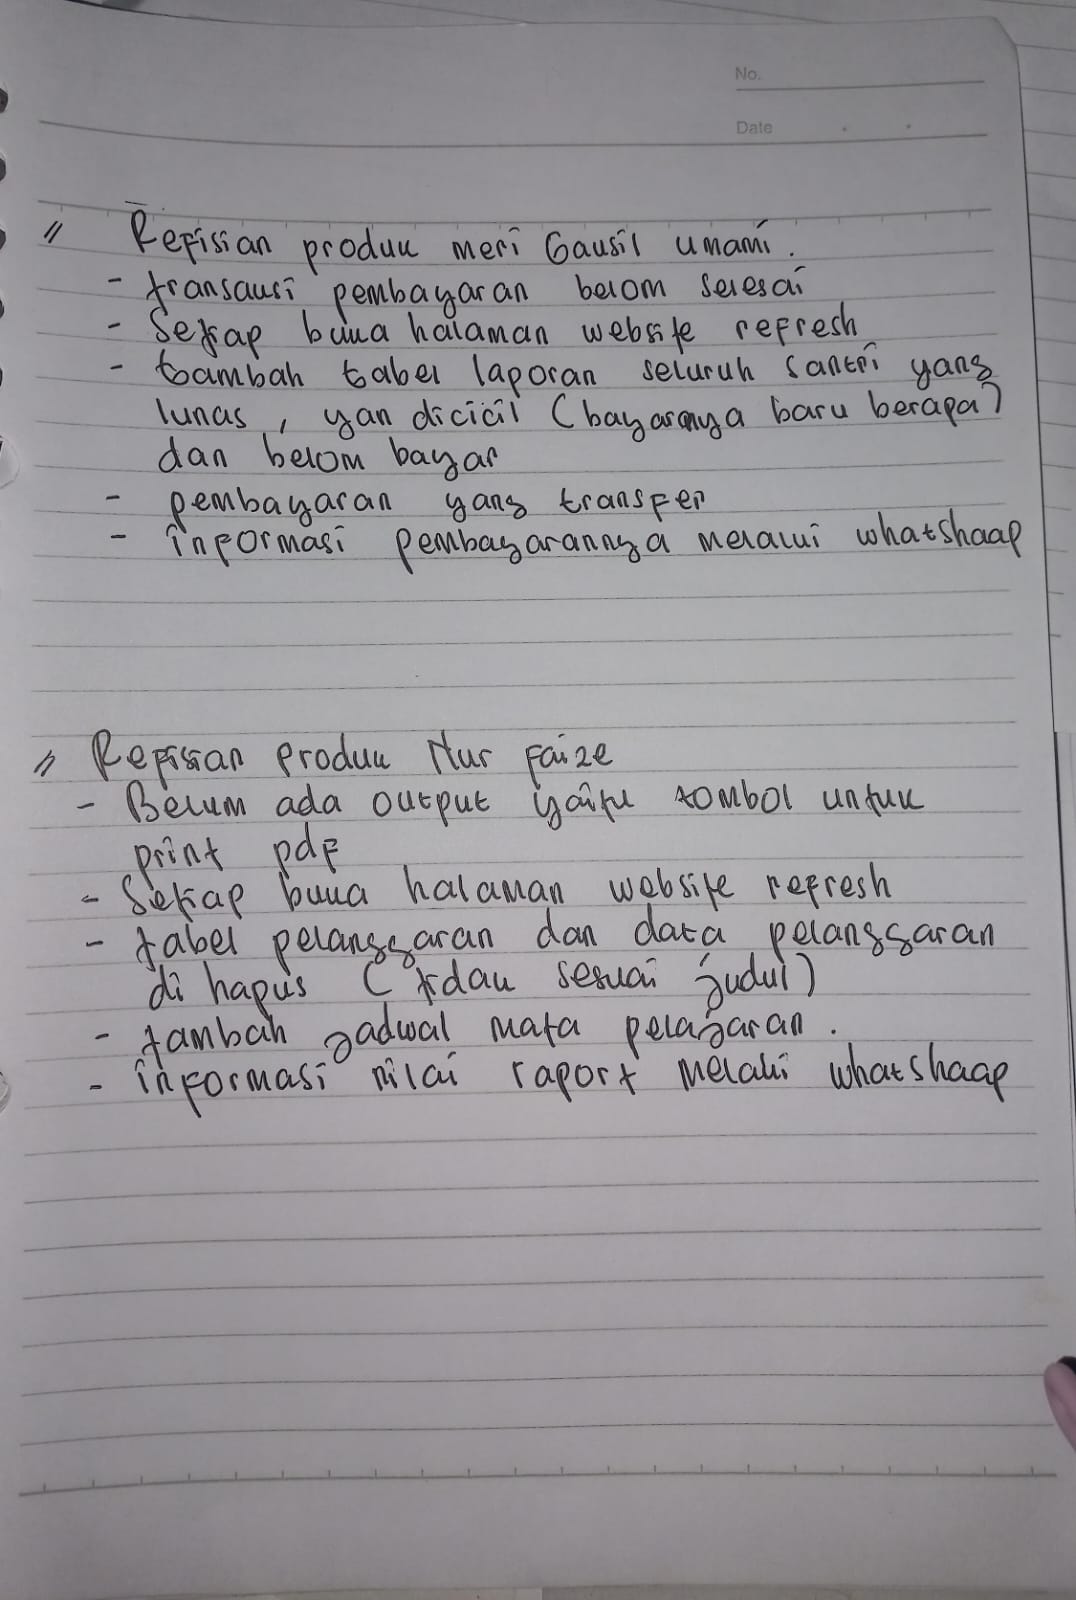 No.
Date
// Refisian produk meri Gausil umami.
- transaksi pembayaran belom selesai
- Setiap buka halaman website refresh
- tambah tabel laporan seluruh santri yang
lunas, yan dicicil (bayaranya baru berapa)
dan belom bayar
- pembayaran yang transfer
- informasi pembayarannya melalui whatshaap
// Refisian produk Nur faize
- Belum ada output yaitu tombol untuk
print pdf
- Setiap buka halaman website refresh
- tabel pelanggaran dan data pelanggaran
di hapus (tidak sesuai judul)
- tambah jadwal mata pelajaran.
- informasi nilai raport melalui whatshaap